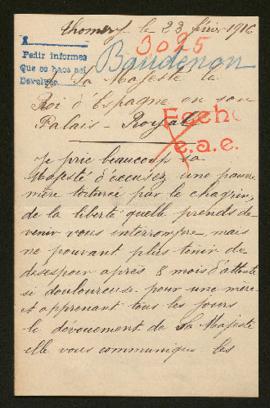 Thomery le 23 févr 1916
3025
Pedir informes
Que se haga así
Devolver
Baudenon
Sa Majesté le
Roi d'Espagne en son
Palais - Royal
Fecho
e.a.e.
Je prie beaucoup sa
Majesté d'excuser une pauvre
mère torturée par le chagrin,
de la liberté quelle prends de
venir vous interrompre, mais
ne pouvant plus tenir de
desespoir après 8 mois d'attente
si douloureuse pour une mère
et apprenant tous les jours
le dévouement de Sa Majesté
elle vous communique les